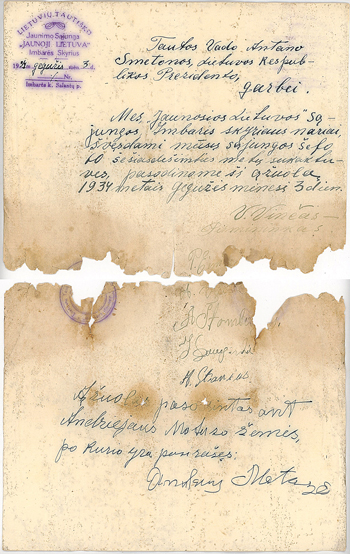 LIETUVIŲ TAUTINIO
Jaunimo Sąjunga
"JAUNOJI LIETUVA"
Imbarės Skyrius
193 gegužis mėn. 3 d.
Nr.
Imbarės k. Salantų p.
Tautos Vado, Antano
Smetonos, Lietuvos Respub-
likos Prezidento,
garbei.
Mes, "Jaunosios Lietuvos" Są-
jungos, Imbarės skyriaus nariai,
švęsdami mūsų Sąjungos šefo,
60 šešiasdešimties metų sukaktu-
ves, pasodinome šį ąžuolą
1934 metais gegužės mėnesį 3 dien.
V. Vinčas
A. Stombr
Ąžuolas pasodintas ant
Andriejaus Motuzo žemės,
po kuriuo yra pasirašęs: